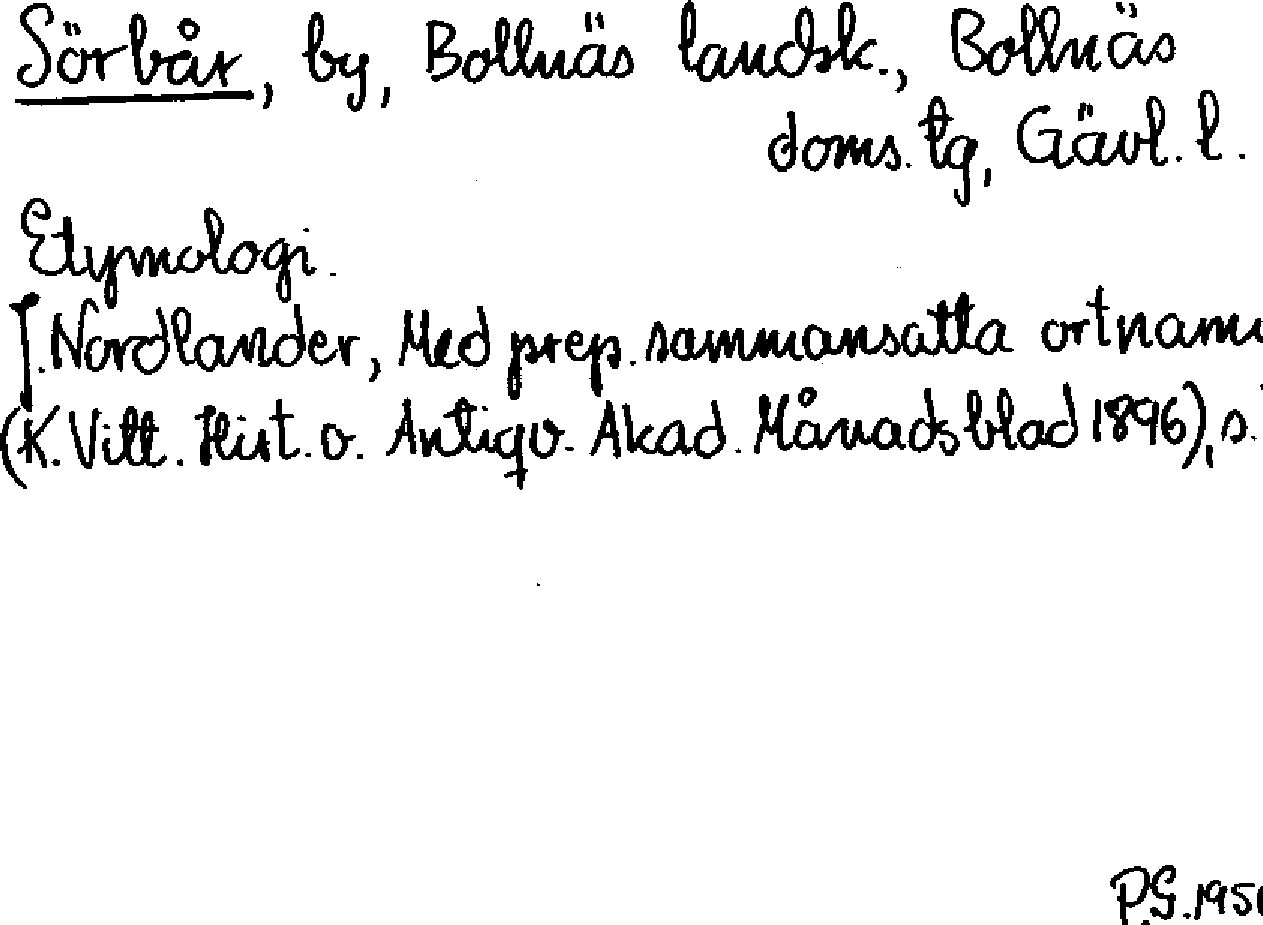 Sörbår, by, Bollnäs landsk., Bollnäs
doms. tg, Gävl. l.
Etymologi.
J. Nordlander, Med prep. sammansatta ortnamn
(K. Vitt. Hist. o. Antiqv. Akad. Månadsblad 1896), s.
P.G. 195